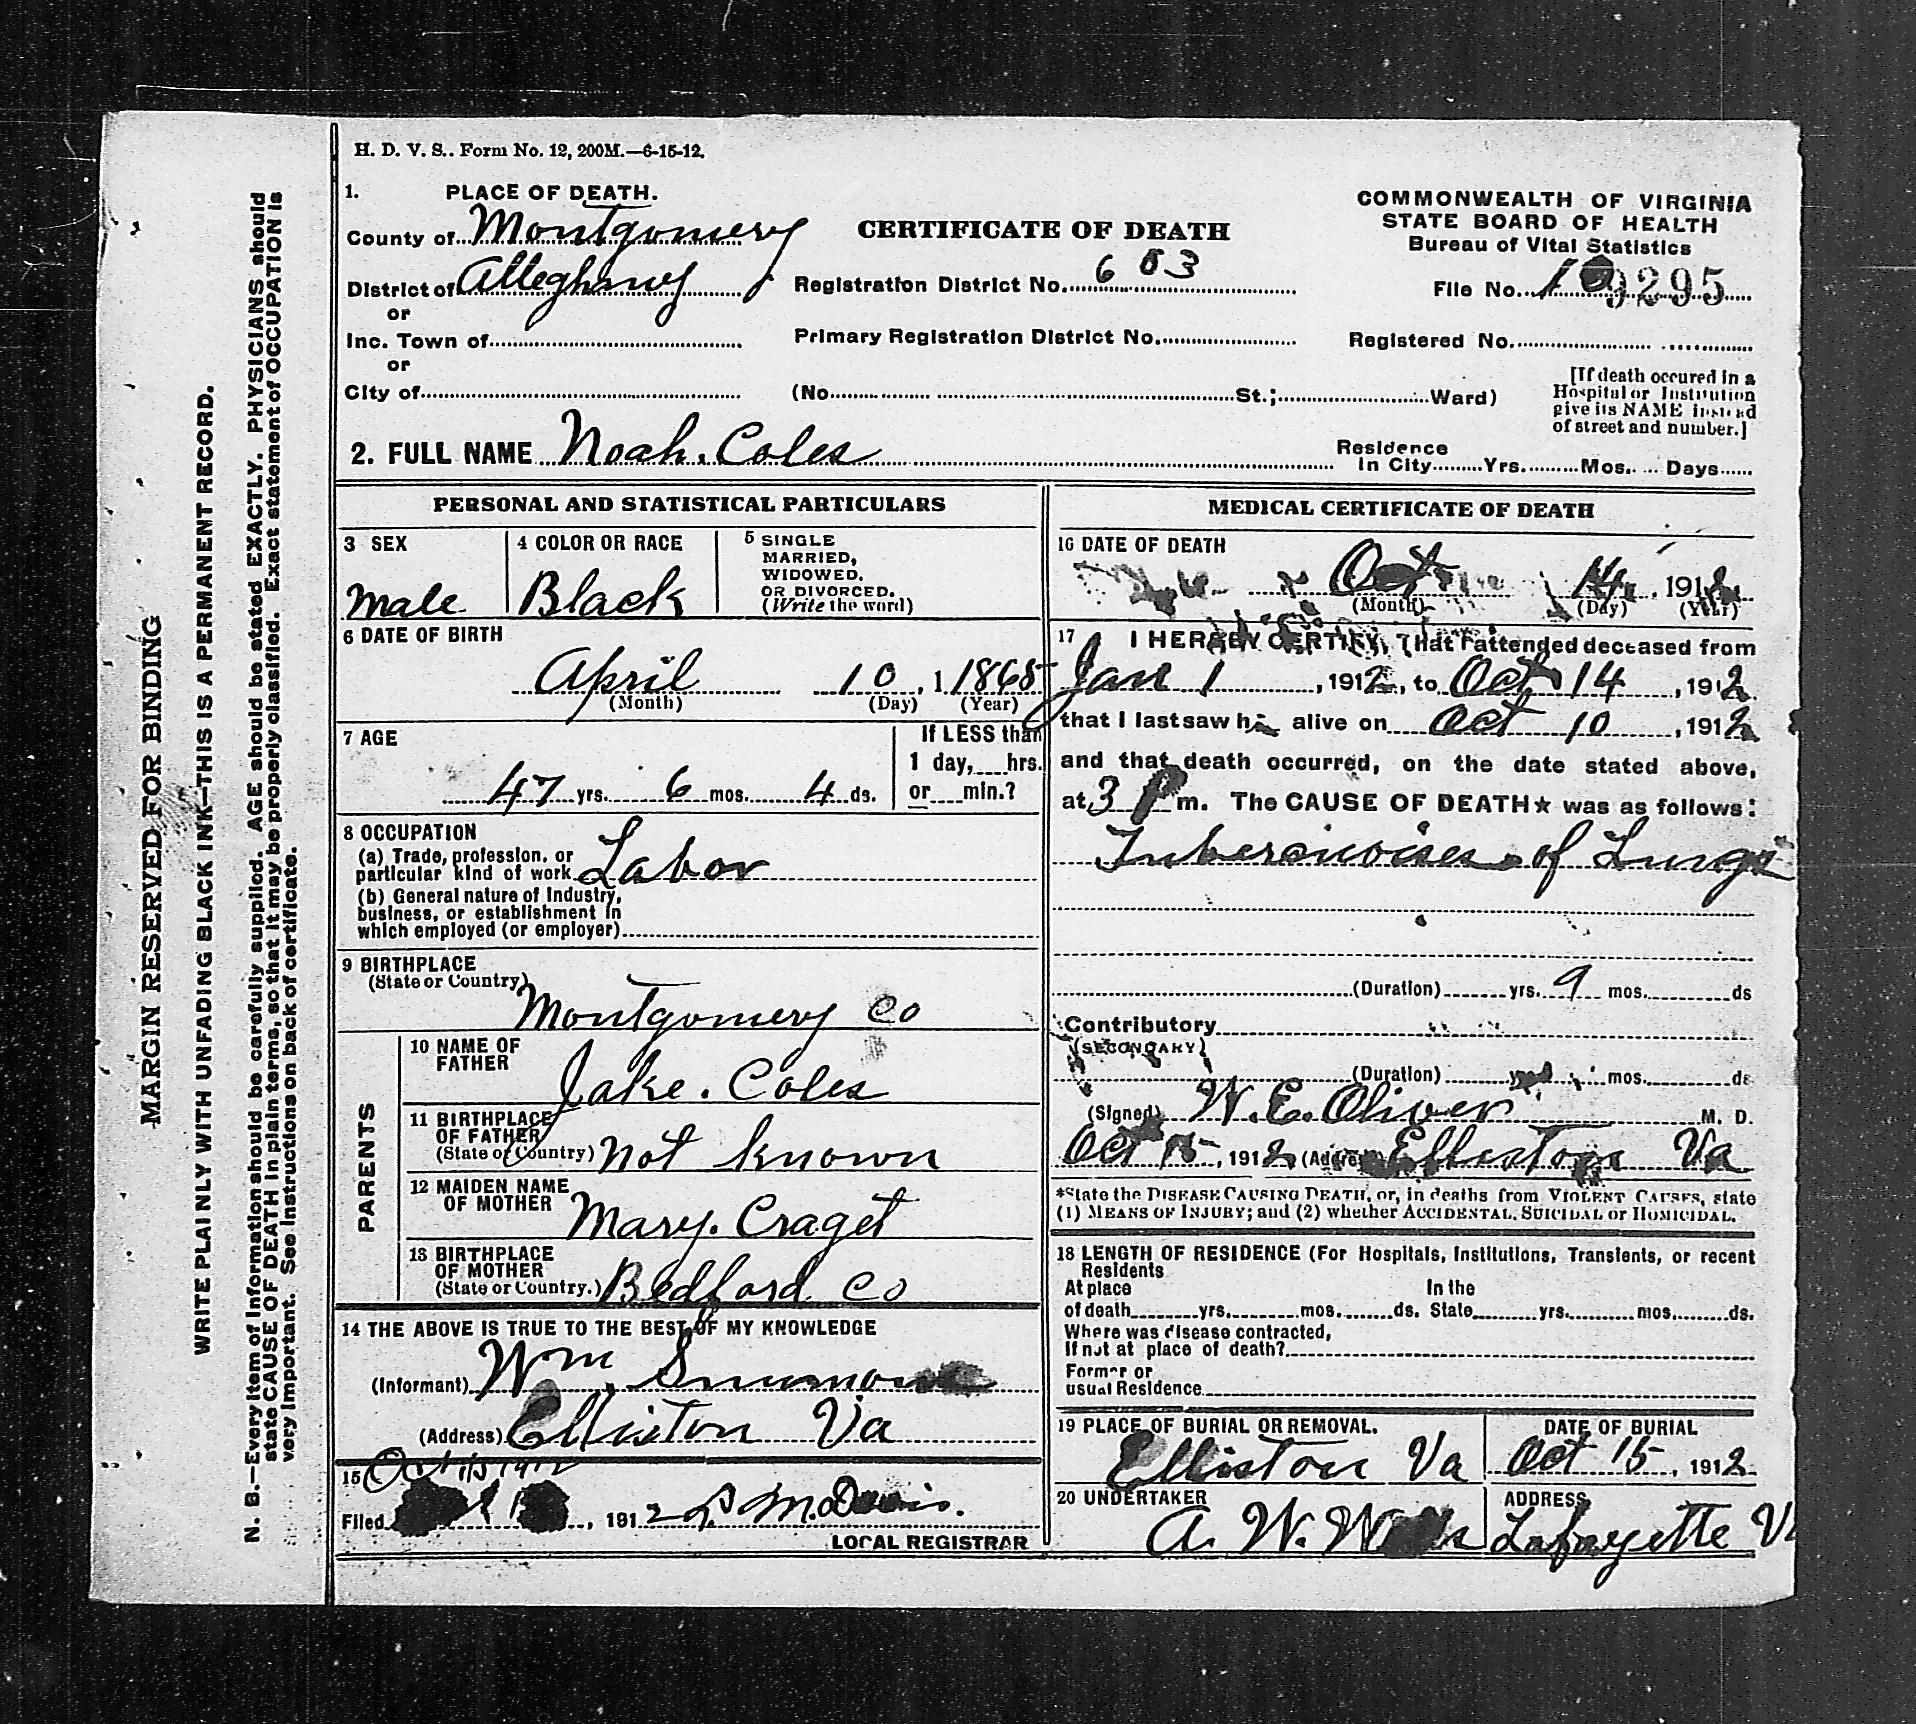 H. D. V. S.. Form No. 12, 200M.—6-15-12.
1. PLACE OF DEATH.
County of Montgomery
District of Alleghany
or
Inc. Town of
or
City of
CERTIFICATE OF DEATH
Registration District No. 603
Primary Registration District No.
(No St.; Ward)
COMMONWEALTH OF VIRGINIA
STATE BOARD OF HEALTH
Bureau of Vital Statistics
File No. 9295
Registered No.
[If death occured in a
Hospital or Institution
give its NAME instead
of street and number.]
2. FULL NAME Noah. Coles
Residence
In City Yrs. Mos. Days
PERSONAL AND STATISTICAL PARTICULARS
3 SEX
Male
4 COLOR OR RACE
Black
5 SINGLE
MARRIED,
WIDOWED.
OR DIVORCED.
(Write the word)
6 DATE OF BIRTH
April 10, 1 1865
(Month) (Day) (Year)
7 AGE
47 yrs. 6 mos. 4 ds.
If LESS than
1 day, hrs.
or min.?
8 OCCUPATION
(a) Trade, profession, or
particular kind of work Labor
(b) General nature of Industry,
business, or establishment in
which employed (or employer)
9 BIRTHPLACE
(State or Country)
Montgomery Co
PARENTS
10 NAME OF
FATHER
Jake. Coles
11 BIRTHPLACE
OF FATHER
(State or Country) not known
12 MAIDEN NAME
OF MOTHER
Mary. Craget
13 BIRTHPLACE
OF MOTHER
(State or Country.) Bedford Co
14 THE ABOVE IS TRUE TO THE BEST OF MY KNOWLEDGE
(Informant) Wm.
(Address) Elliston Va
15 Oct 15 1912
Filed , 1912 Davis.
LOCAL REGISTRAR
MEDICAL CERTIFICATE OF DEATH
16 DATE OF DEATH
Oct 14, 1912
(Month) (Day) (Year)
17 I HEREBY CERTIFY, That I attended deceased from
Jan 1, 1912, to Oct 14, 1912
that I last saw him alive on Oct 10, 1912
and that death occurred, on the date stated above,
at 3 P m. The CAUSE OF DEATH★ was as follows:
Tuberculoises of Lungs
(Duration) yrs. 9 mos. ds
Contributory
(SECONDARY)
(Duration) yrs. mos. ds
(Signed) W. E. Oliver M. D.
Oct 15, 1912 (Address) Elliston Va
*State the DISEASE CAUSING DEATH, or, in deaths from VIOLENT CAUSES, state
(1) MEANS OF INJURY; and (2) whether ACCIDENTAL, SUICIDAL or HOMICIDAL.
18 LENGTH OF RESIDENCE (For Hospitals, Institutions, Transients, or recent
Residents
At place In the
of death yrs. mos. ds. State yrs. mos. ds.
Where was disease contracted,
If not at place of death?
Former or
usual Residence
19 PLACE OF BURIAL OR REMOVAL.
Elliston Va
DATE OF BURIAL
Oct 15, 1912
20 UNDERTAKER
A. W.
ADDRESS
Lafayette Va
MARGIN RESERVED FOR BINDING
WRITE PLAINLY WITH UNFADING BLACK INK—THIS IS A PERMANENT RECORD.
N. B.—Every item of information should be carefully supplied. AGE should be stated EXACTLY. PHYSICIANS should
state CAUSE OF DEATH in plain terms, so that it may be properly classified. Exact statement of OCCUPATION is
very important. See instructions on back of certificate.